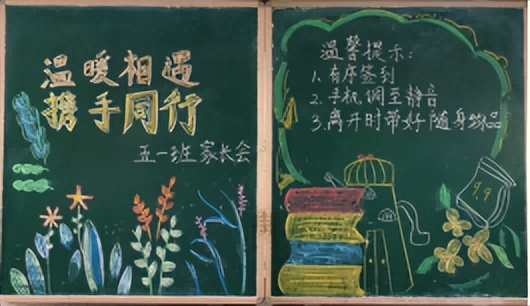 温暖相遇
携手同行
五一班家长会
温馨提示:
1.有序签到
2.手机调至静音
3.离开时带好随身物品
99